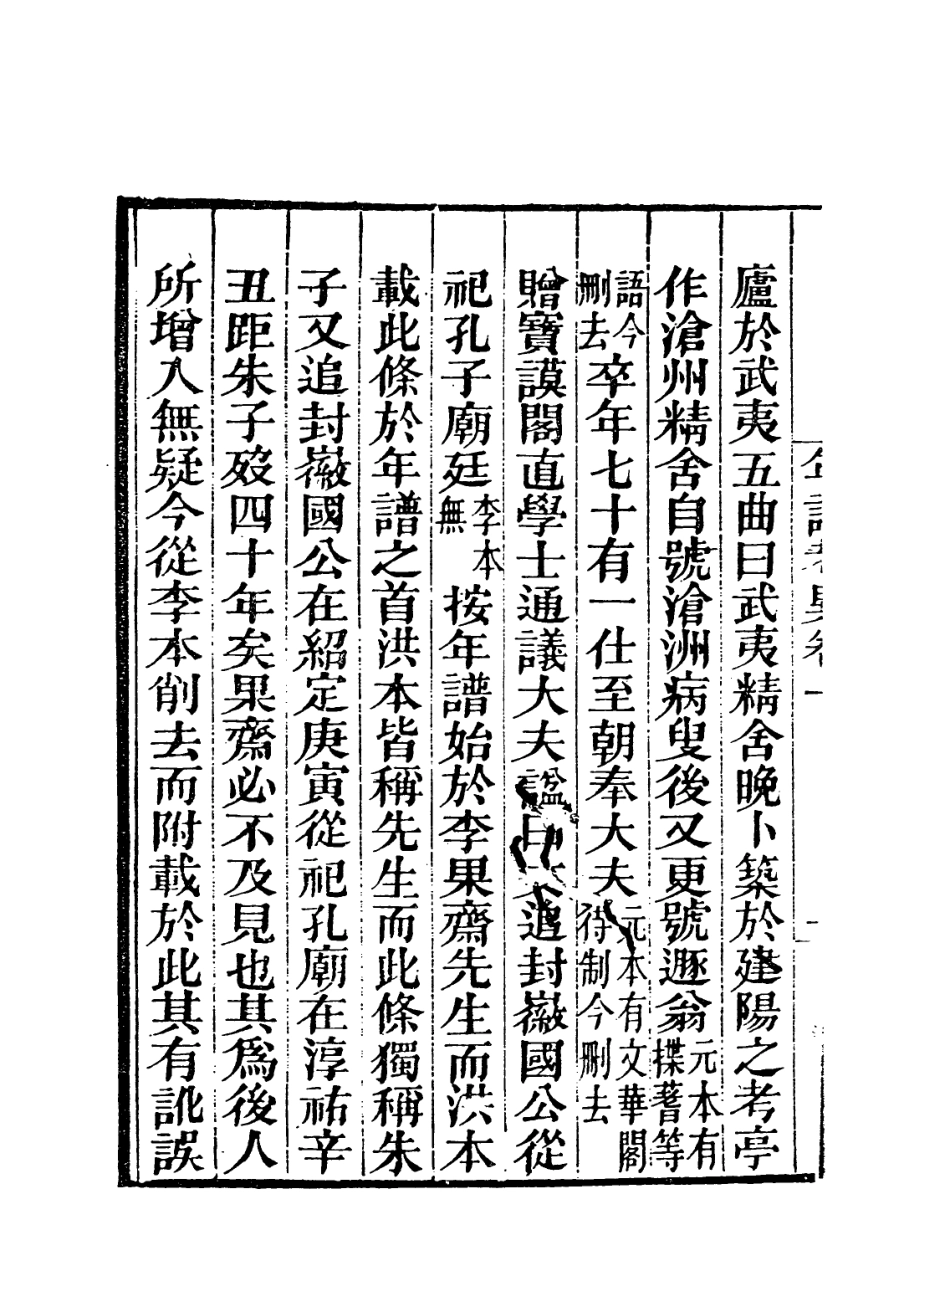 廬於武夷五曲曰武夷精舍晚卜築於建陽之考亭
作滄州精舍自號滄洲病叟後又更號遯翁元本有揲蓍等
語今刪去卒年七十有一仕至朝奉大夫元本有文華閣待制今刪去
贈寶謨閣直學士通議大夫諡曰文追封徽國公從
祀孔子廟廷李本無按年譜始於李果齋先生而洪本
載此條於年譜之首洪本皆稱先生而此條獨稱朱
子又追封徽國公在紹定庚寅從祀孔廟在淳祐辛
丑距朱子歿四十年矣果齋必不及見也其爲後人
所增入無疑今從李本削去而附載於此其有訛誤